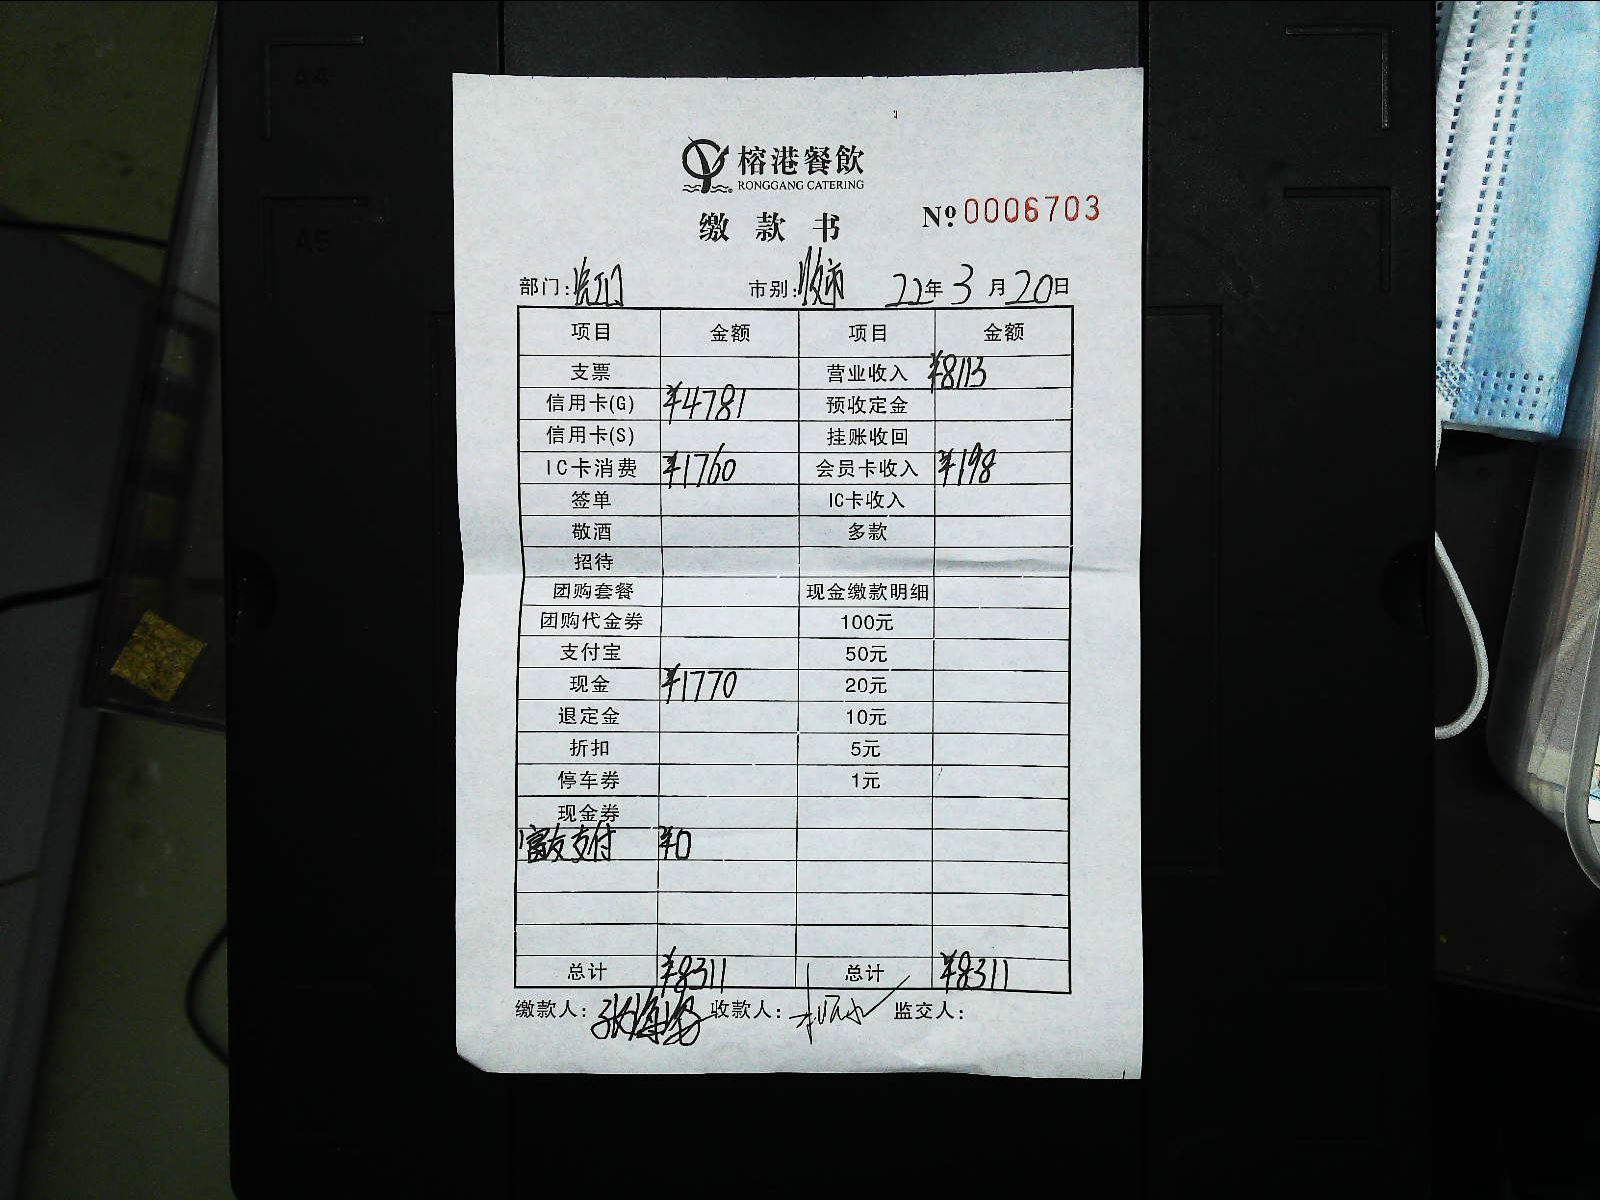 A4
A5
榕港餐飲
RONGGANG CATERING
缴款书
№0006703
部门: 市别: 22年3月20日
项目 金额 项目 金额
支票 营业收入 ¥8113
信用卡(G) ¥4781 预收定金
信用卡(S) 挂账收回
IC卡消费 ¥1760 会员卡收入 ¥198
签单 IC卡收入
敬酒 多款
招待
团购套餐 现金缴款明细
团购代金券 100元
支付宝 50元
现金 ¥1770 20元
退定金 10元
折扣 5元
停车券 1元
现金券
富友支付 ¥0
总计 ¥8311 总计 ¥8311
缴款人: 收款人: 监交人: